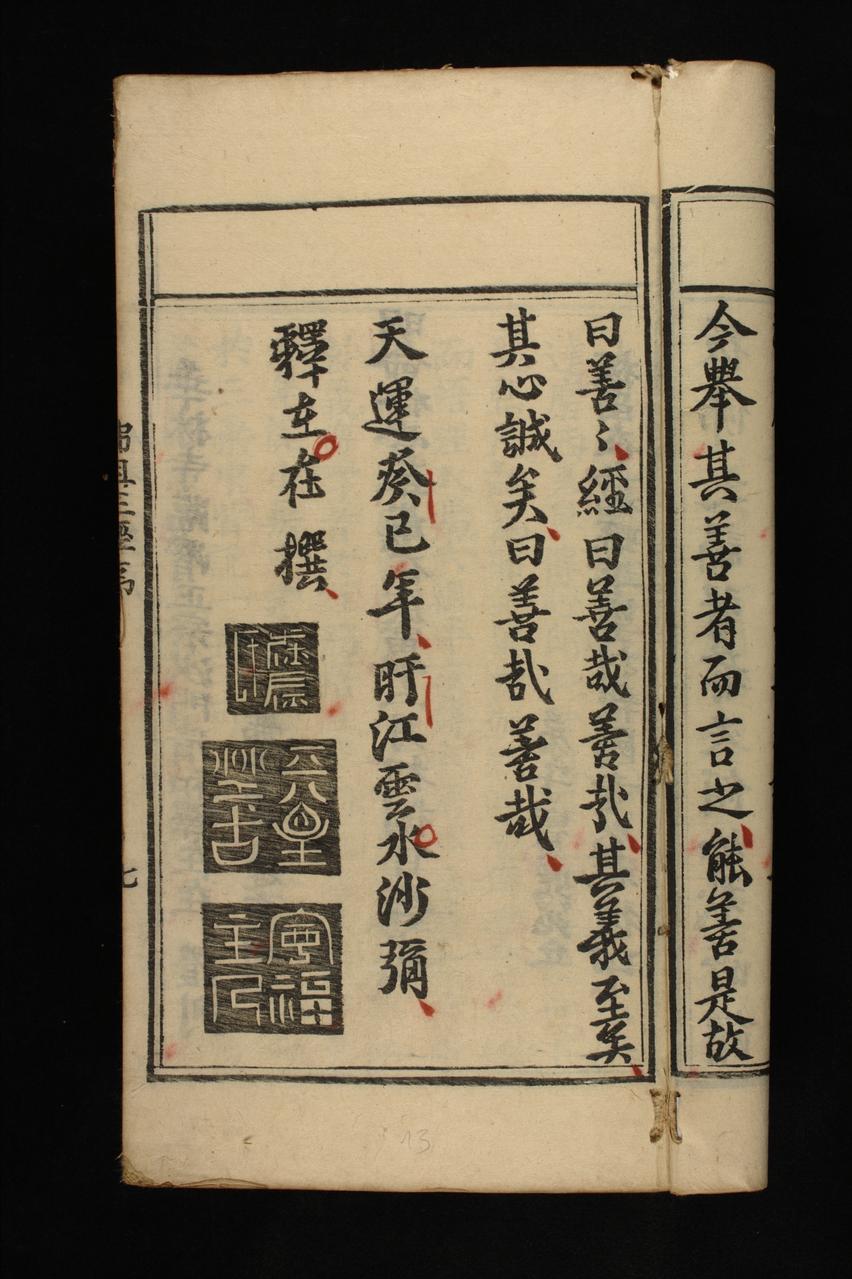 今舉其善者而言之能善是故
曰善〻經曰善哉善哉其義至矣
其心誠矣曰善哉善哉
天運癸巳年盱江雲水沙彌
釋在在撰
七
13